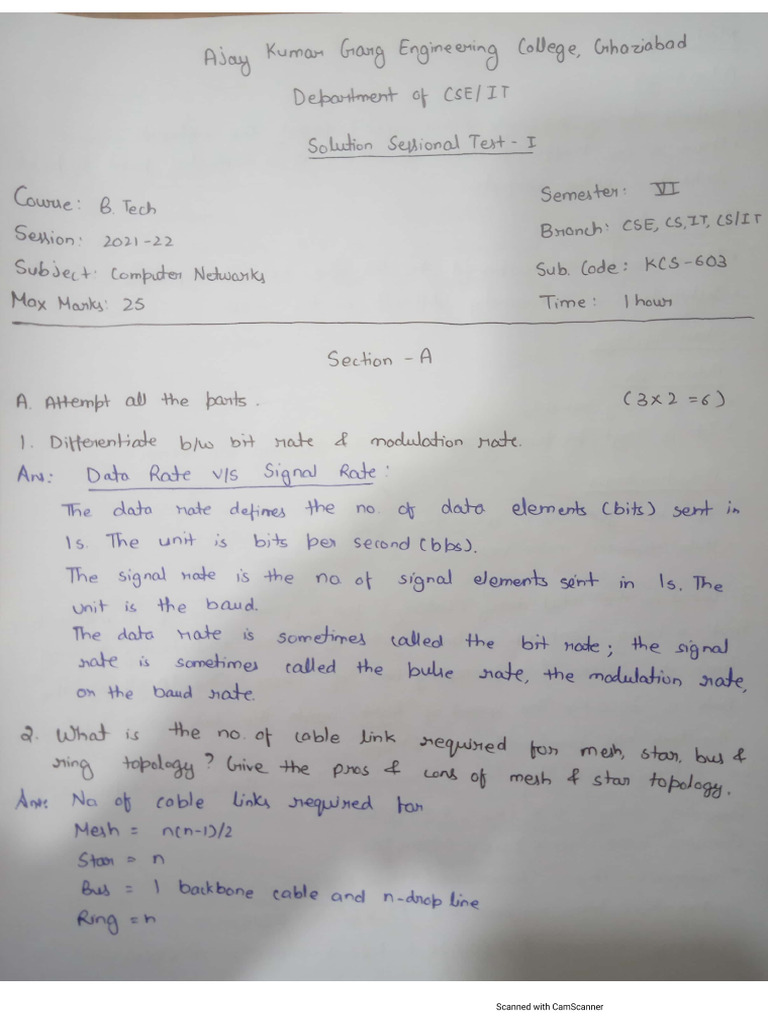 Ajay Kumar Garg Engineering College, Ghaziabad
Department of CSE/IT
Solution Sessional Test - I
Course: B. Tech
Semester: VI
Session: 2021-22
Branch: CSE, CS, IT, CS/IT
Subject: Computer Networks
Sub. Code: KCS-603
Max Marks: 25
Time: 1 hour
Section - A
A. Attempt all the parts. (3x2=6)
1. Differentiate b/w bit rate & modulation rate.
Ans: Data Rate v/s Signal Rate:
The data rate defines the no. of data elements (bits) sent in
1s. The unit is bits per second (bps).
The signal rate is the no. of signal elements sent in 1s. The
unit is the baud.
The data rate is sometimes called the bit rate; the signal
rate is sometimes called the pulse rate, the modulation rate,
or the baud rate.
2. What is the no. of cable link required for mesh, star, bus &
ring topology? Give the pros & cons of mesh & star topology.
Ans: No of cable links required for
Mesh = n(n-1)/2
Star = n
Bus = 1 backbone cable and n-drop line
Ring = n
Scanned with CamScanner